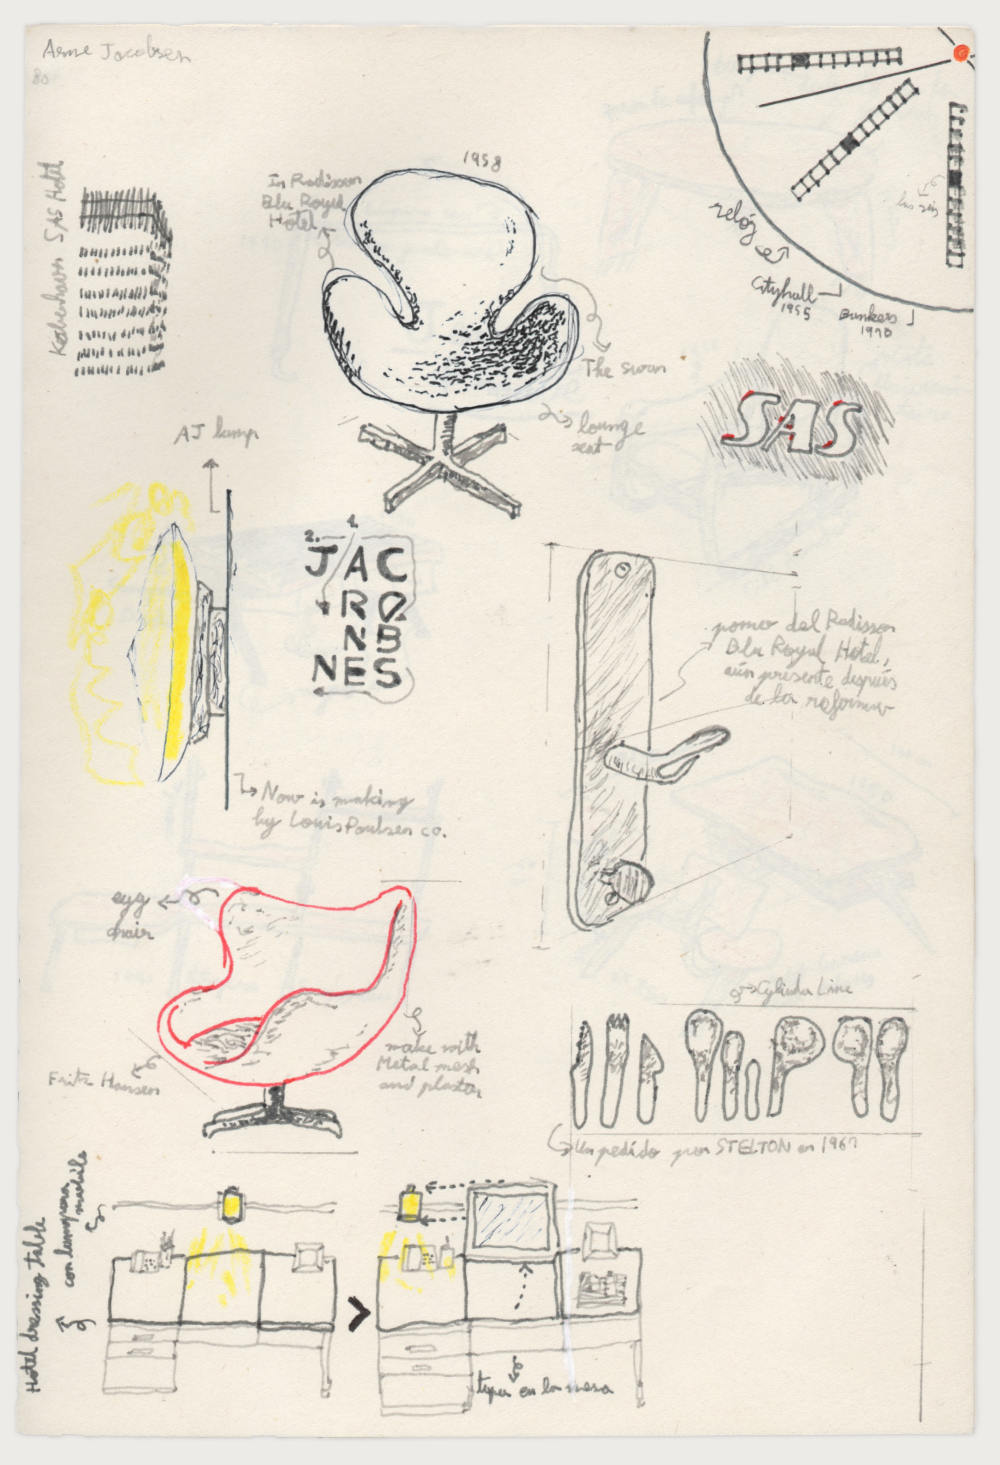 Arne Jacobsen
80
København SAS Hotel
In Radisson
Blu Royal
Hotel
1958
The swan
lounge
seat
reloj
las seis
Cityhall
1955
Bankers
1970
SAS
AJ lamp
1.
2.
JAC
RO
NB
NES
Now is making
by Louis Poulsen co.
pomo del Radisson
Blu Royal Hotel,
aún presente después
de la reforma
egg
chair
make with
Metal mesh
and plaster
Fritz Hansen
Cylinda Line
Un pedido por STELTON en 1967
Hotel dressing table
con lampara
mobile
en la mesa